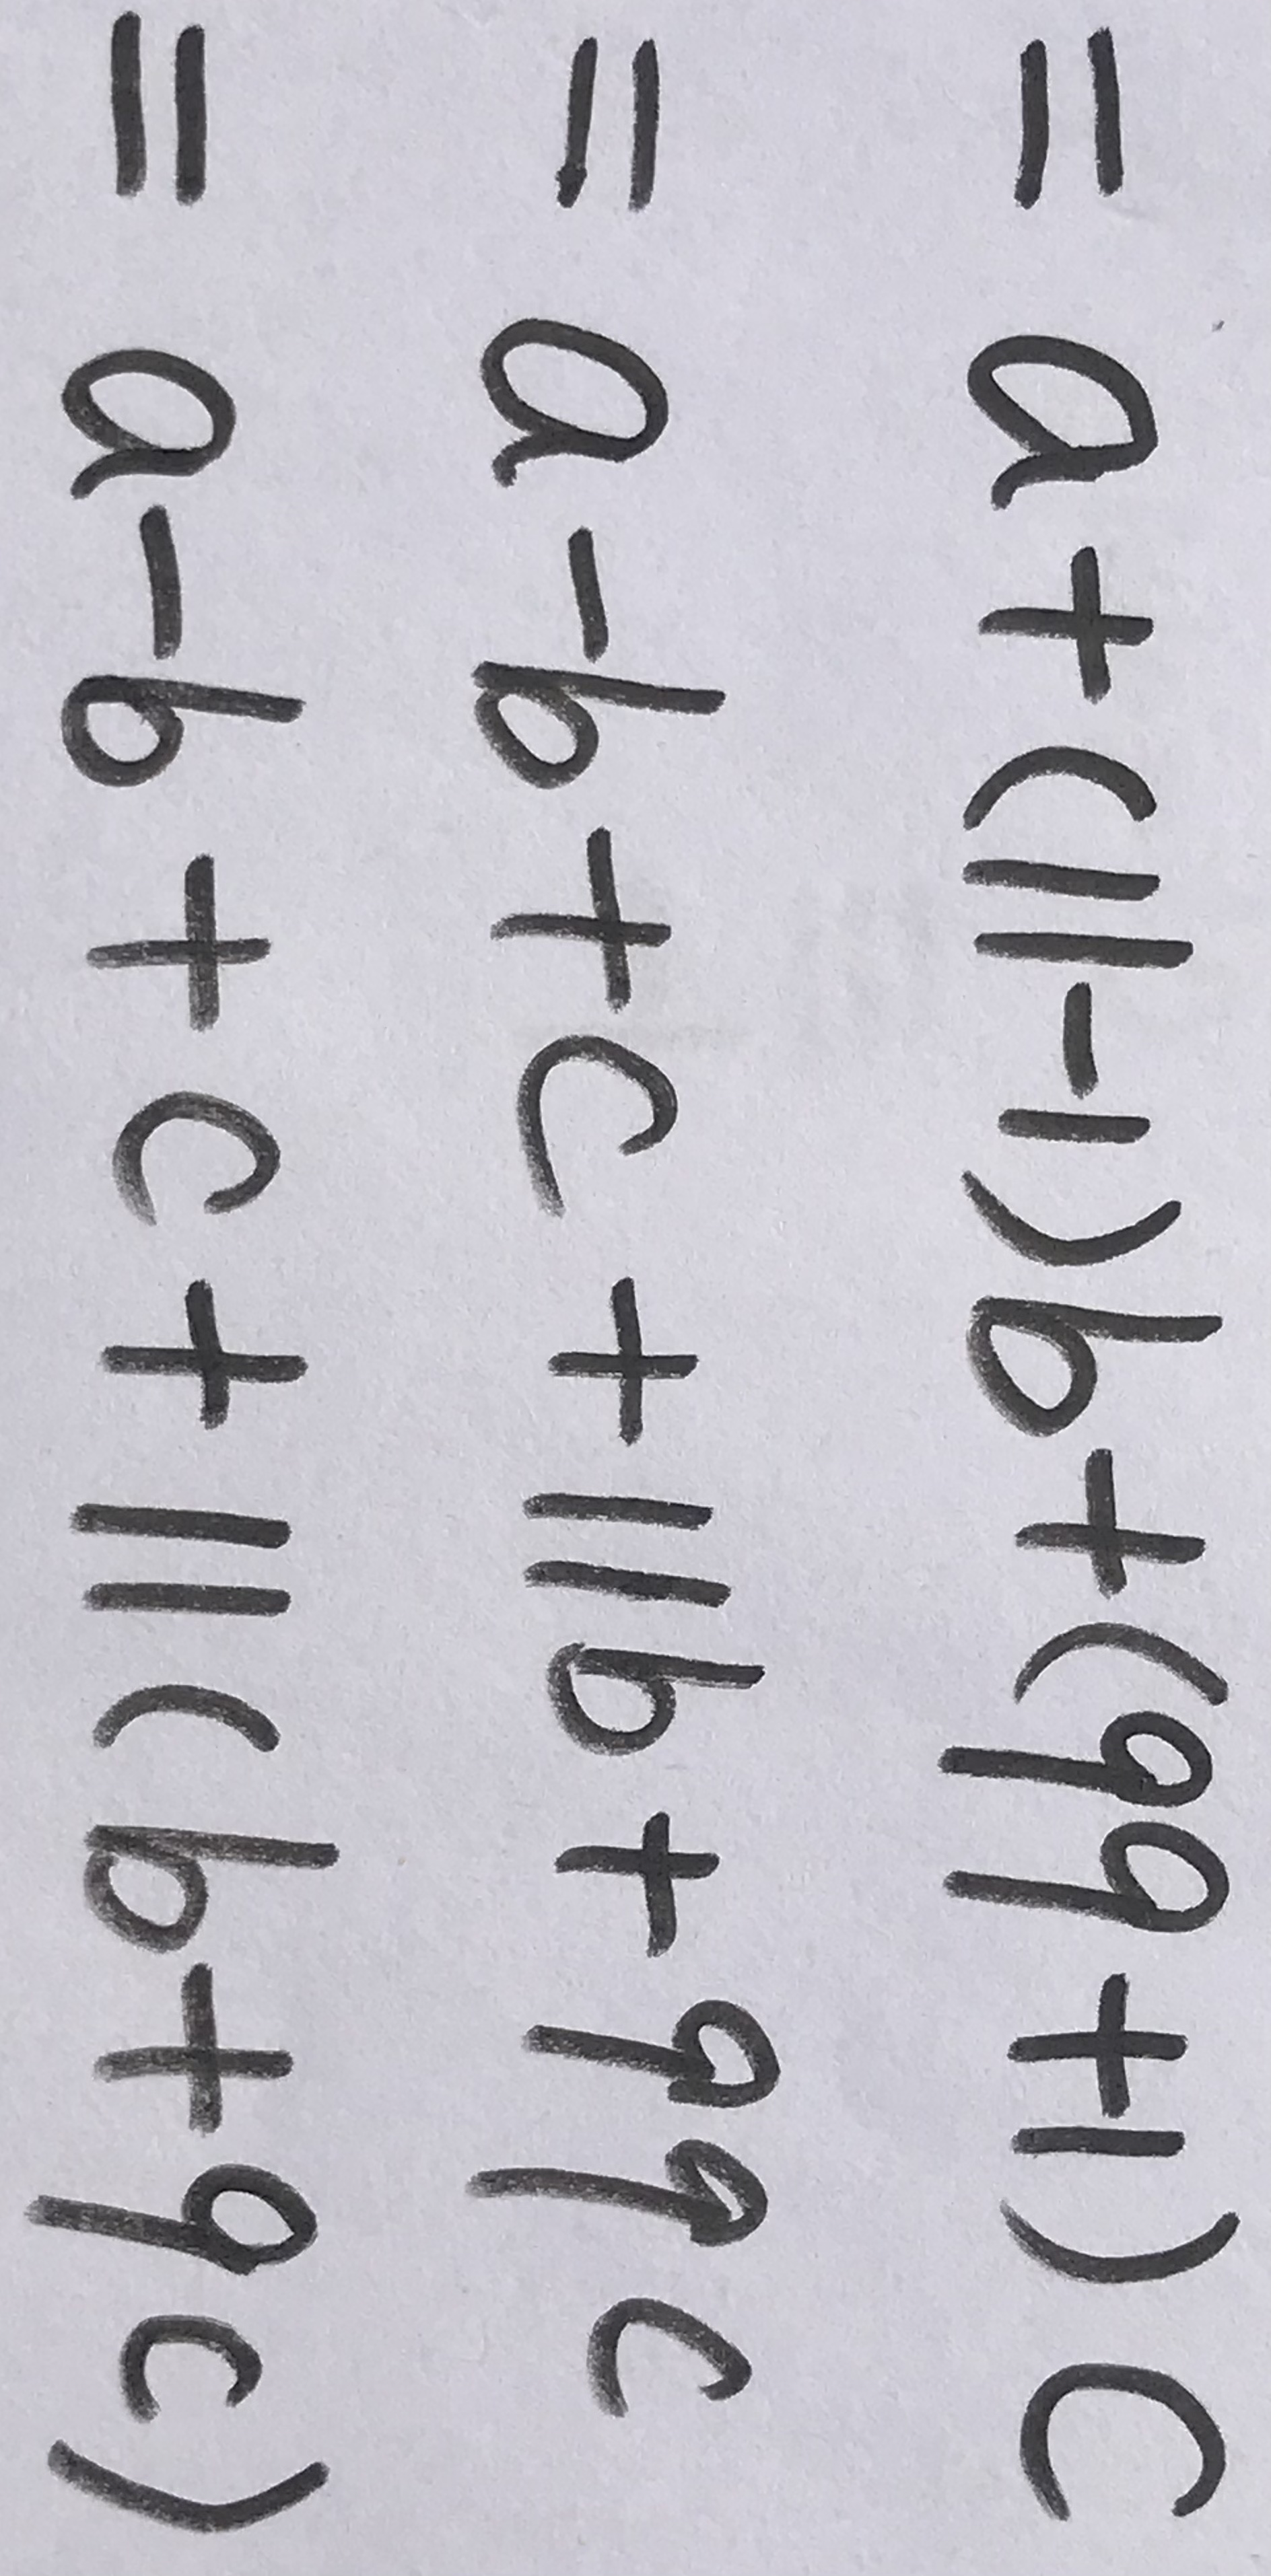 = a + (11-1)b + (99+1)c
= a-b+c + 11b + 99c
= a-b+c + 11(b+9c)